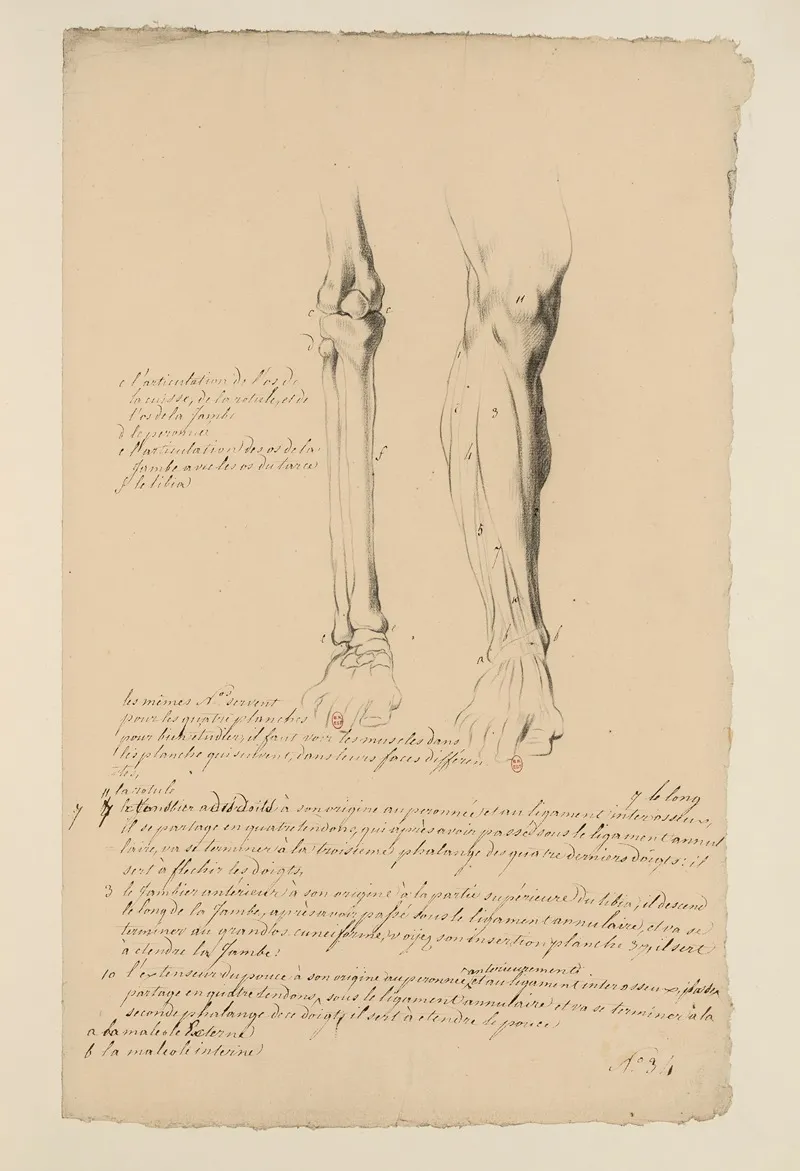 c l'articulation de l'os de
la cuisse, de la rotule, et de
l'os de la Jambe
d le peronné
e l'articulation des os de la
Jambe avec les os du tarce
f le tibia
c
c
d
f
e
e
11
1
3
4
5
7
10
a
b
les mêmes N.os servent
pour les quatre planches
pour bien étudier, il faut voir les muscles dans
les planche qui suivent, dans leurs faces différen
tes,
11 la rotule
7 le long
7 7 a son origine au peronnée, et au ligament interosseux,
il se partage en quatre tendons, qui après avoir passé sous le ligament annul
laire, va se terminer à la troisieme phalange des quatre derniers doigts: il
sert à flechir les doigts,
3 le Jambier antérieur à son origine à la partie supérieure du tibia, il descend
le long de la Jambe, après avoir passé sous le ligament annulaire, et va se
terminer au grand os cuneiforme, voyez son insertion planche 37, il sert
à etendre la Jambe:
10 l'extenseur du pouce à son origine au peronnée antérieurement et au ligament interosseux,
partage en quatre tendons, sous le ligament annulaire et va se terminer à la
seconde phalange de ce doigt, il sert à etendre le pouce
a la maleole Externe
b la maleole interine
N.o 34